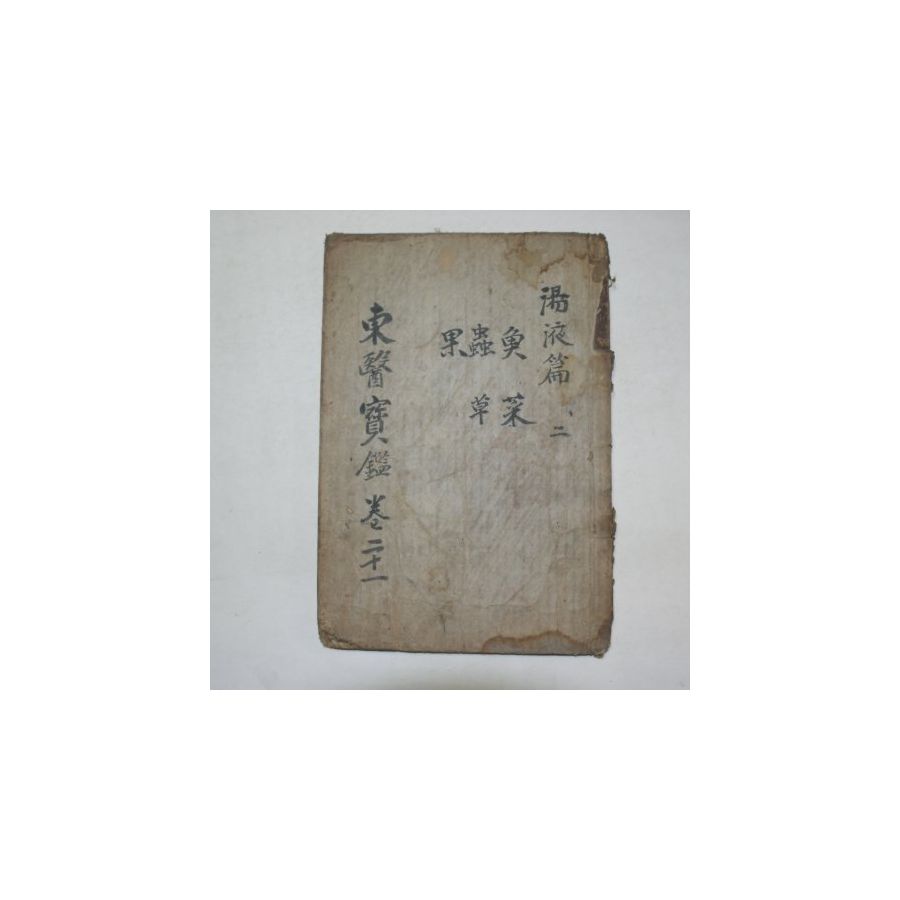 湯液篇 二
魚 菜
蟲 草
果
東醫寶鑑 卷二十一